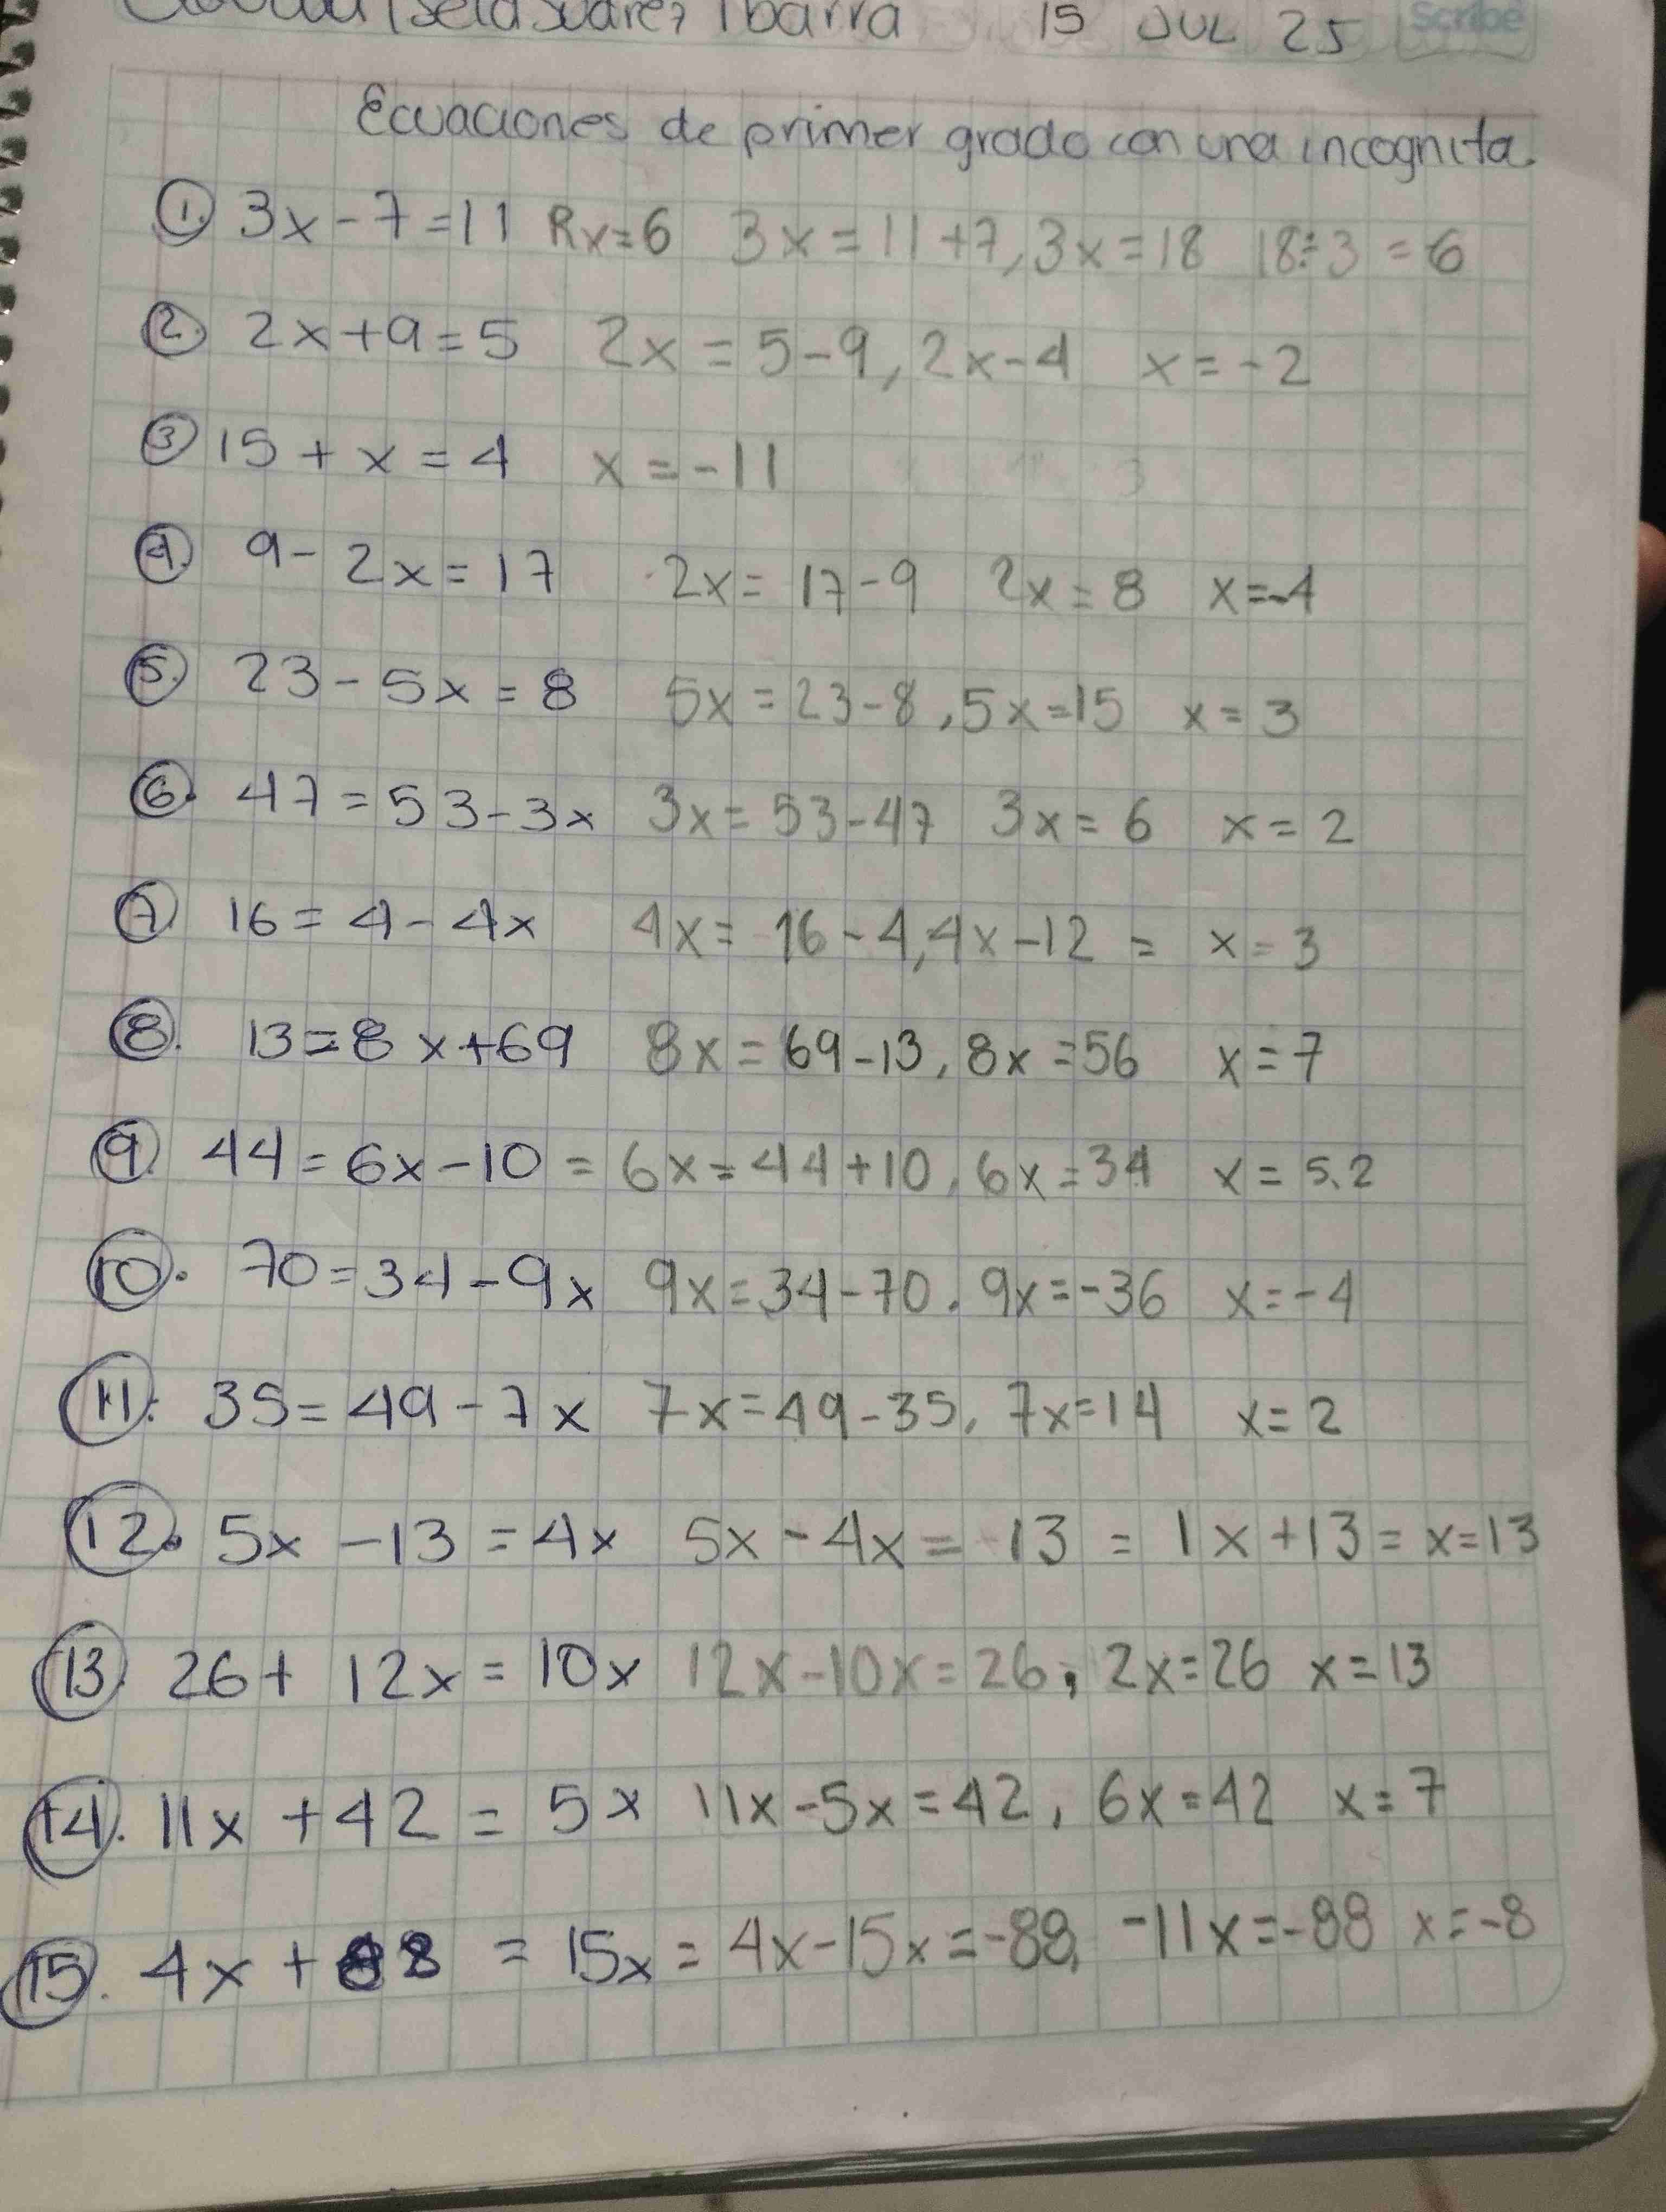 Isela Suarez Ibarra 15 JUL 25 Scribe
Ecuaciones de primer grado con una incognita.
1. 3x - 7 = 11 R x = 6 3x = 11 + 7, 3x = 18 18 ÷ 3 = 6
2. 2x + 9 = 5 2x = 5 - 9, 2x - 4 x = - 2
3 15 + x = 4 x = - 11
4. 9 - 2x = 17 2x = 17 - 9 2x = 8 x = -4
5. 23 - 5x = 8 5x = 23 - 8, 5x = 15 x = 3
6. 47 = 53 - 3x 3x = 53 - 47 3x = 6 x = 2
7 16 = 4 - 4x 4x = 16 - 4, 4x - 12 = x = 3
8. 13 = 8x + 69 8x = 69 - 13, 8x = 56 x = 7
9. 44 = 6x - 10 = 6x = 44 + 10, 6x = 34 x = 5.2
10. 70 = 34 - 9x 9x = 34 - 70. 9x = - 36 x = - 4
11. 35 = 49 - 7x 7x = 49 - 35, 7x = 14 x = 2
12. 5x - 13 = 4x 5x - 4x = 13 = 1x + 13 = x = 13
13. 26 + 12x = 10x 12x - 10x = 26, 2x = 26 x = 13
14. 11x + 42 = 5x 11x - 5x = 42, 6x = 42 x = 7
15. 4x + 88 = 15x = 4x - 15x = -88, -11x = -88 x = -8